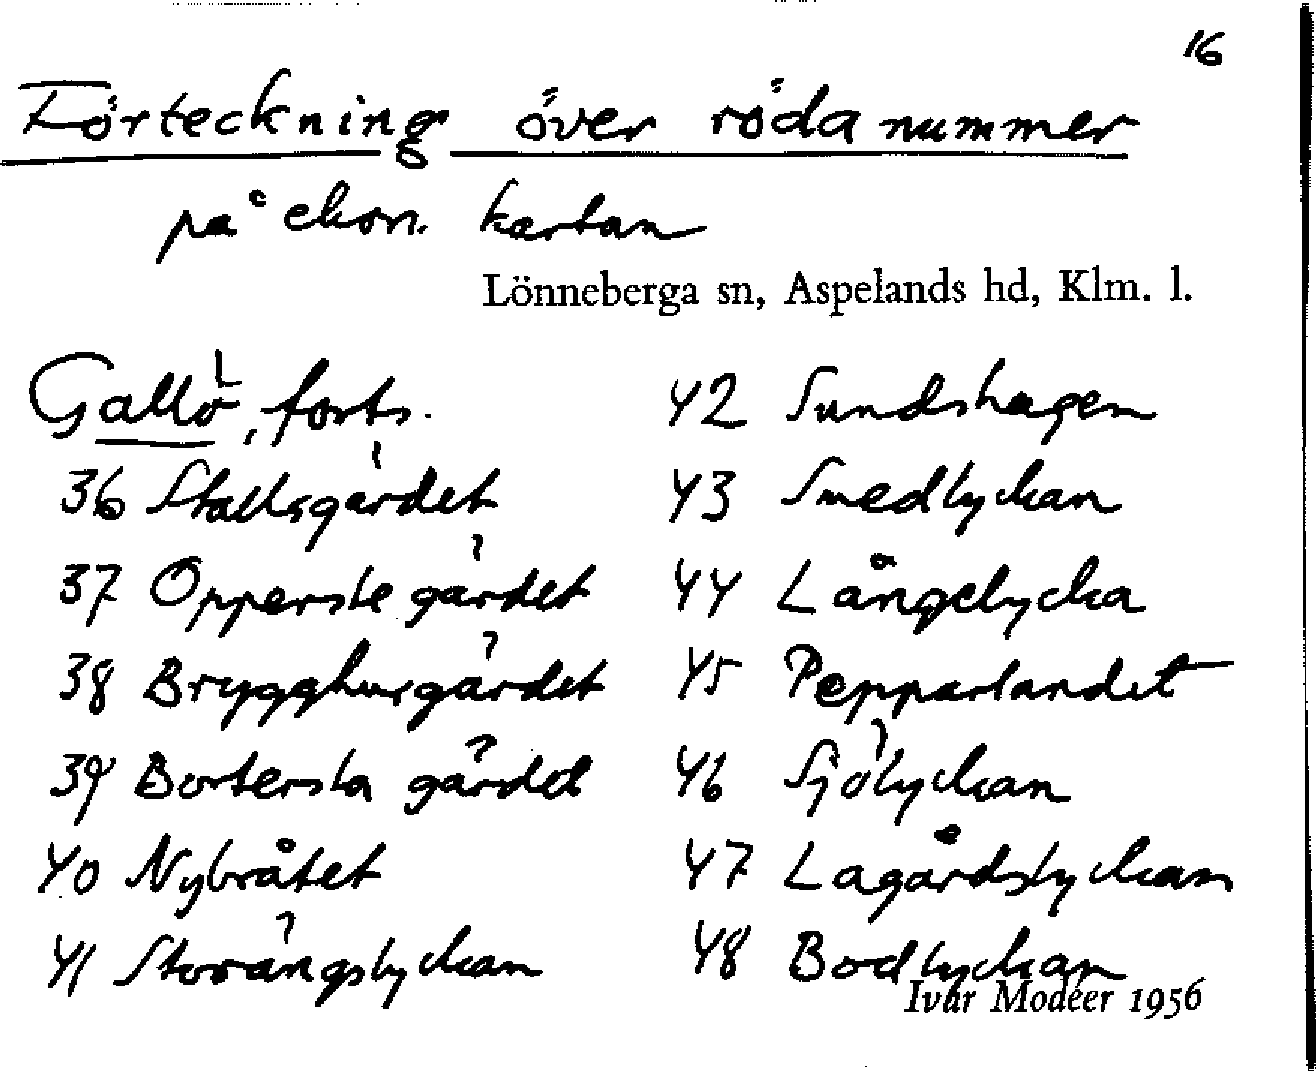 16
Förteckning över röda nummer
på ekon. kartan
Lönneberga sn, Aspelands hd, Klm. l.
Gallö, forts.
36 Stallsgärdet
37 Opperste gärdet
38 Brygghusgärdet
39 Bortersta gärdet
40 Nybråtet
41 Storängslyckan
42 Sundshagen
43 Smedlyckan
44 Långelycka
45 Pepparlandet
46 Sjölyckan
47 Lagårdslyckan
48 Bodlyckan
Ivar Modéer 1956